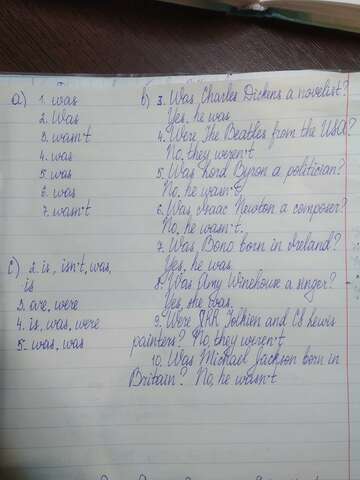 a) 1. was
2. Was
3. wasn't
4. was
5. was
6. was
7. wasn't
b) 3. Was Charles Dickens a novelist?
Yes, he was
4. Were The Beatles from the USA?
No, they weren't
5. Was Lord Byron a politician?
No, he wasn't
6. Was Isaac Newton a composer?
No, he wasn't.
7. Was Bono born in Ireland?
Yes, he was
8. Was Amy Winehouse a singer?
Yes, she was.
9. Were JRR Tolkien and CS Lewis
painters? No, they weren't
10. Was Michael Jackson born in
Britain? No, he wasn't
c) 2. is, isn't, was,
is
3. are, were
4. is, was, were
5- was, was